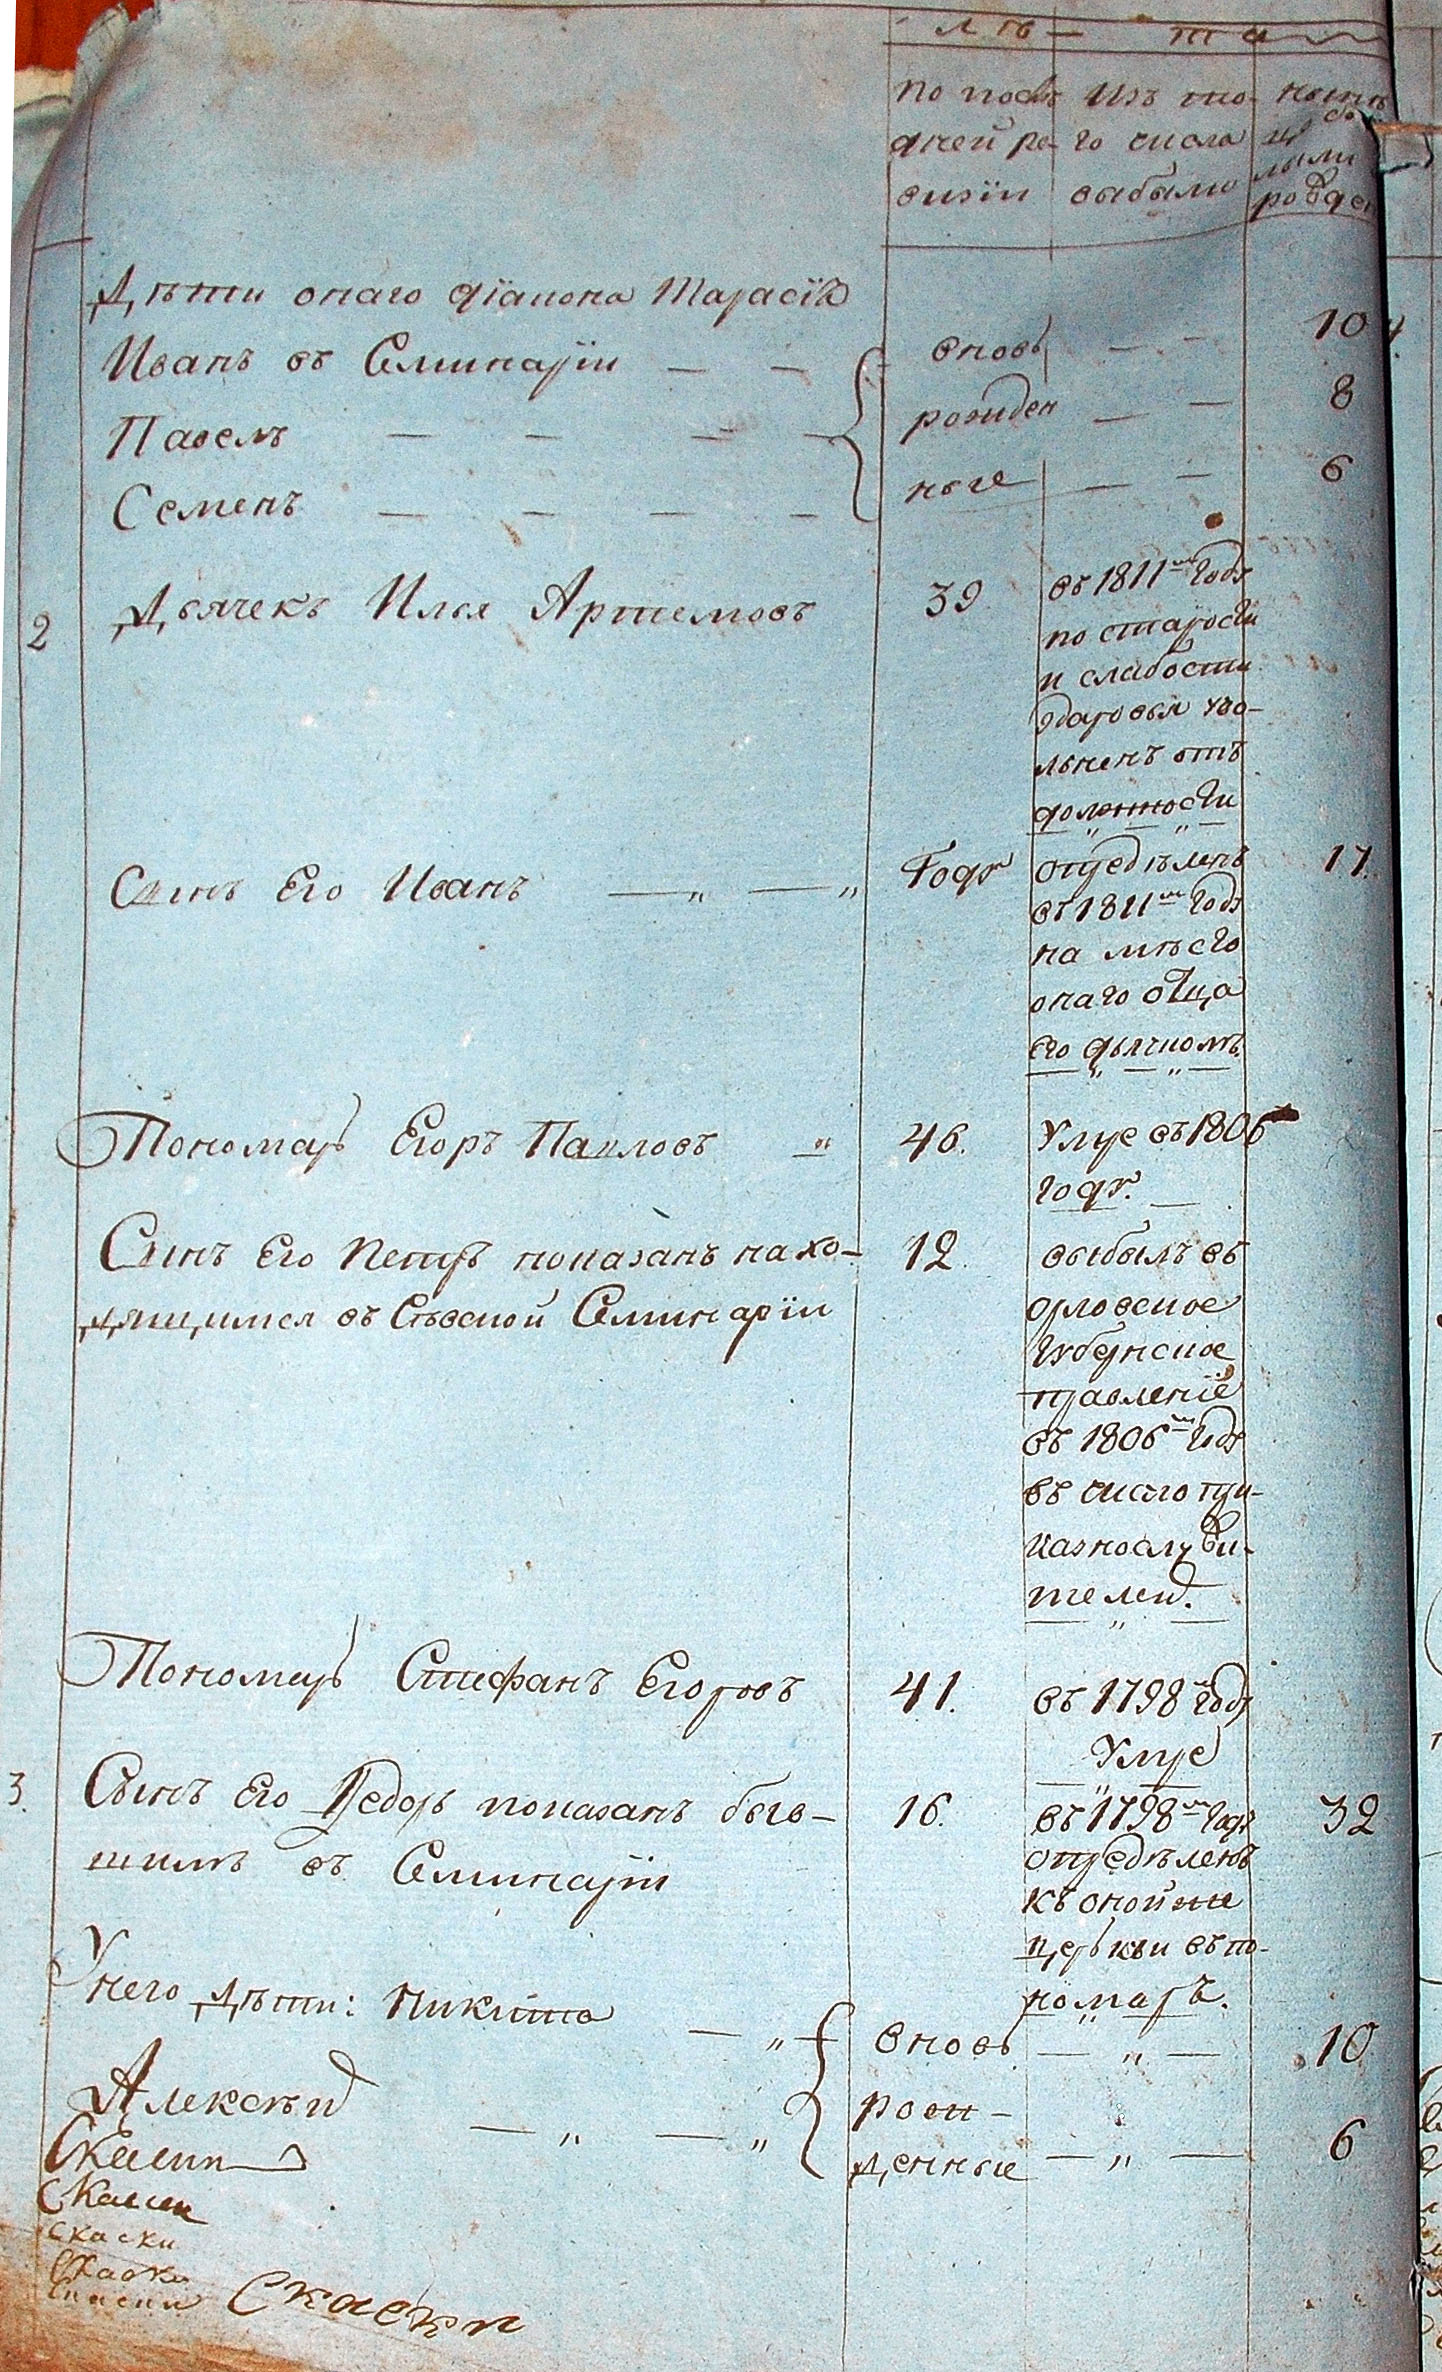 лѣ — та
по послѣ
дней ре-
визіи
изъ то-
го числа
выбыло
нынѣ
Дѣти онаго діакона Тарасія
Иванъ въ Семинаріи — — вновь — — 10
Павелъ — — — — рожден — — 8
Семенъ — — — — ные — — 6
2 Дьячекъ Илья Артемовъ 39
въ 1811м году
по старости
и слабости
здаровья уво-
льненъ отъ
должности
Сынъ Его Иванъ — „ — „ Годъ 17.
опредѣленъ
въ 1811м году
на мѣсто
онаго отца
его дьячкомъ
Пономарь Егоръ Павловъ „ 46.
Умре въ 1806
году. —
Сынъ Его Петръ показанъ нахо- 12
дящимся въ Сѣвской Семинаріи
выбылъ въ
орловское
губернское
правленіе
въ 1806м году
въ число при-
казнослужи-
телей.
Пономарь Стефанъ Егоровъ 41.
въ 1798 году
Умре
3. Сынъ Его Ѳедоръ показанъ быв- 16. 32
шимъ въ Семинаріи
въ 1798м году
опредѣленъ
къ оной же
церькви въ по-
номаръ.
У него дѣти: Никита — „ вновь — „ — 10
Алексѣй — „ — „ рож-
денные — „ — 6
Скаски
Скаски
скаски
Скаски
Скаски
Скаски